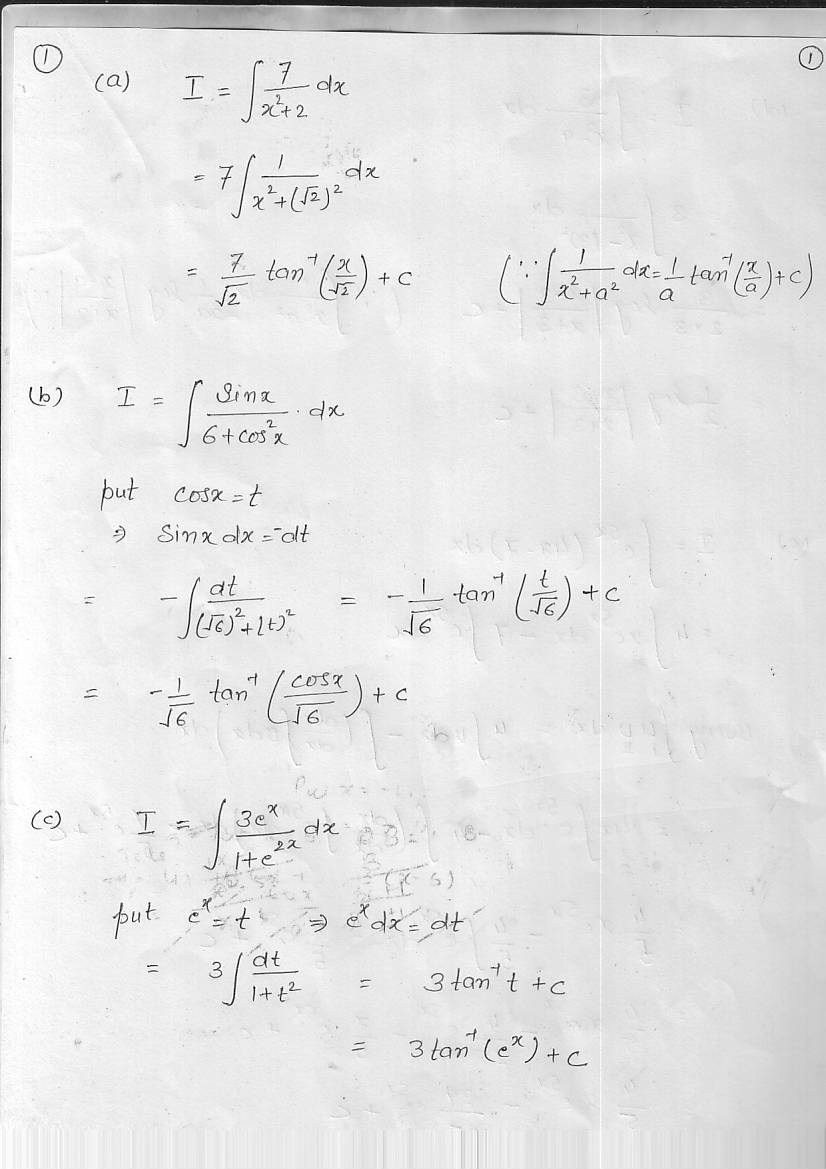 ① ①
(a) I = ∫ 7/(x²+2) dx
= 7 ∫ 1/(x²+(√2)²) dx
= 7/√2 tan⁻¹(x/√2) + c (∵ ∫ 1/(x²+a²) dx = 1/a tan⁻¹(x/a) + c)
(b) I = ∫ Sinx/(6+cos²x) . dx
put cosx = t
⇒ Sinx dx = -dt
= -∫ dt/((√6)²+(t)²) = -1/√6 tan⁻¹(t/√6) + c
= -1/√6 tan⁻¹(cosx/√6) + c
(c) I = ∫ 3eˣ/(1+e²ˣ) dx
put eˣ = t ⇒ eˣdx = dt
= 3 ∫ dt/(1+t²) = 3 tan⁻¹ t + c
= 3 tan⁻¹(eˣ) + c